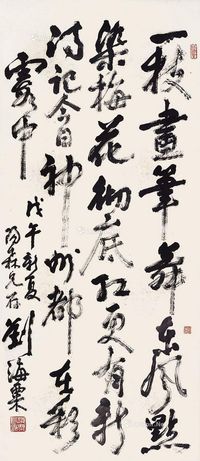 一枝畫筆舞東風點
染梅花徹底紅更有新
詩記今日神州都在彩
霞中
戊午新夏
海森兄存
劉海粟